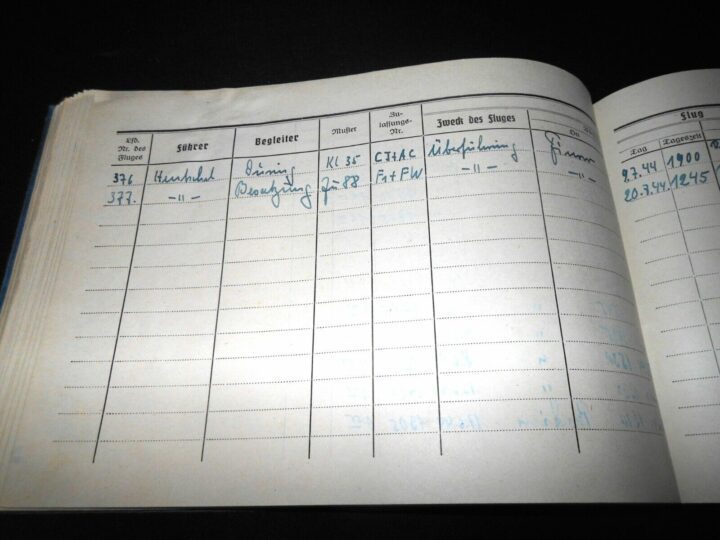 Flug
Lfd. Nr. des Fluges Führer Begleiter Muster Zulassungs-Nr. Zweck des Fluges Tag Tageszeit
376 Düring Kl 35 CJ+AC Überführung 9.7.44 1900
377. -"- Besatzung Ju 88 F1+FW -"- -"- 20.7.44 1245